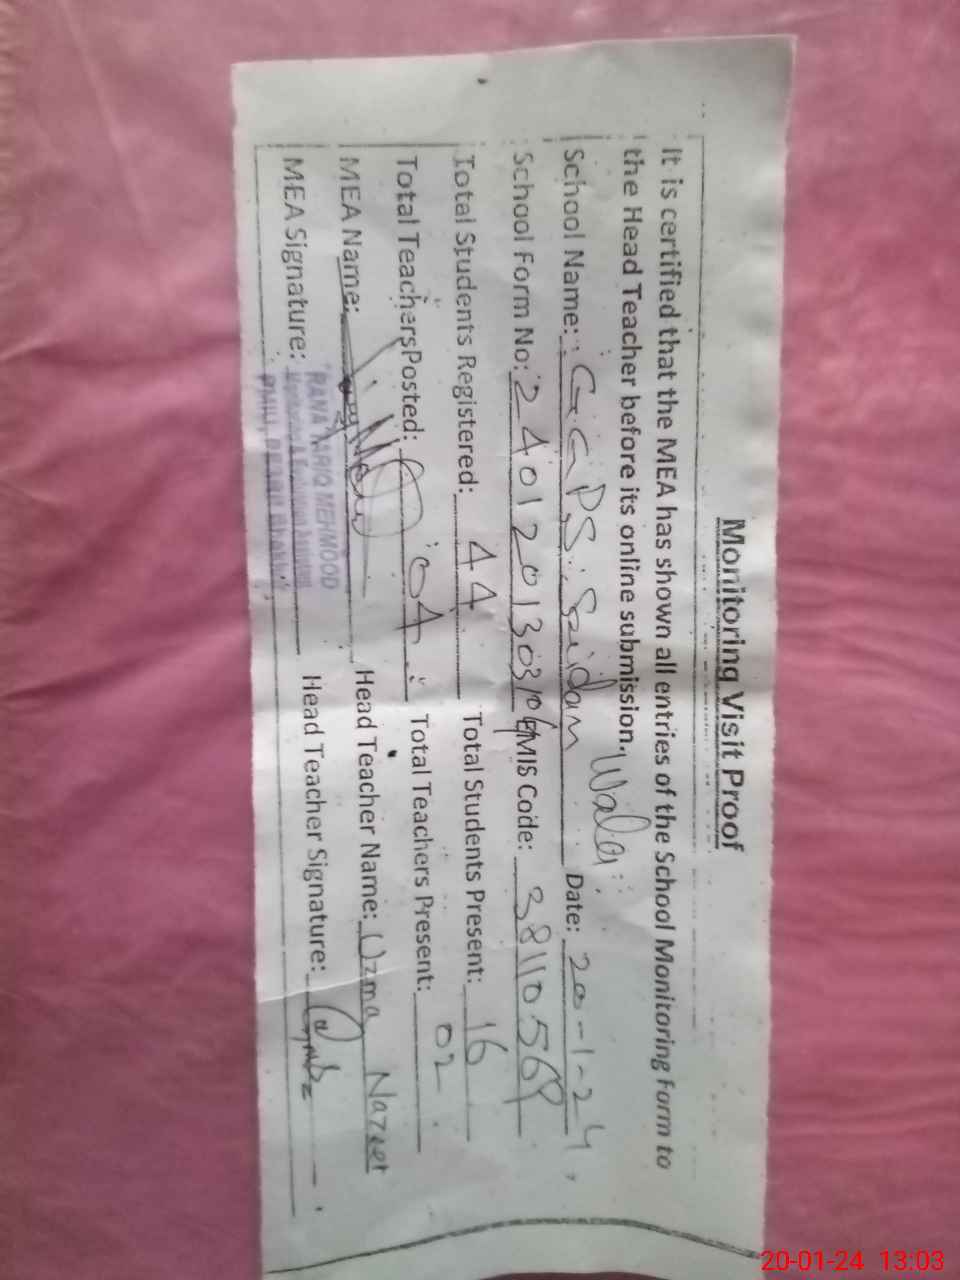 Monitoring Visit Proof
It is certified that the MEA has shown all entries of the School Monitoring Form to
the Head Teacher before its online submission.
School Name: G.G.P.S. Saidam Wala Date: 20-1-24
School Form No: EMIS Code: 38110569
Total Students Registered: 44 Total Students Present: 16
Total Teachers Posted: 04 Total Teachers Present: 02
MEA Name: Head Teacher Name: Uzma Nazeer
MEA Signature: Head Teacher Signature:
RANA TARIQ MEHMOOD
Monitoring & Evaluation Assistant
20-01-24 13:03